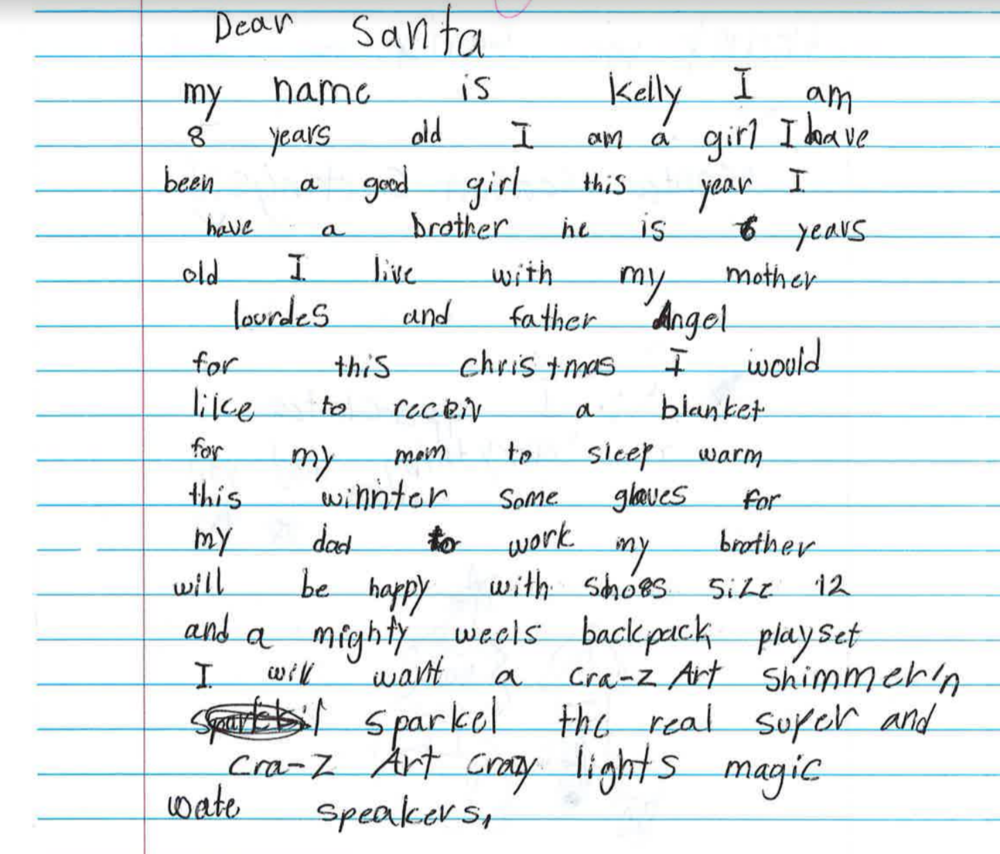 Dear Santa
my name is Kelly I am
8 years old I am a girl I have
been a good girl this year I
have a brother he is 6 years
old I live with my mother
lourdes and father Angel
for this christmas I would
like to receiv a blanket
for my mom to sleep warm
this winnter some gloves for
my dad to work my brother
will be happy with shoes size 12
and a mighty weels backpack playset
I will want a cra-z Art shimmer'n
sparkel the real super and
cra-z Art crazy lights magic
wate speakers,